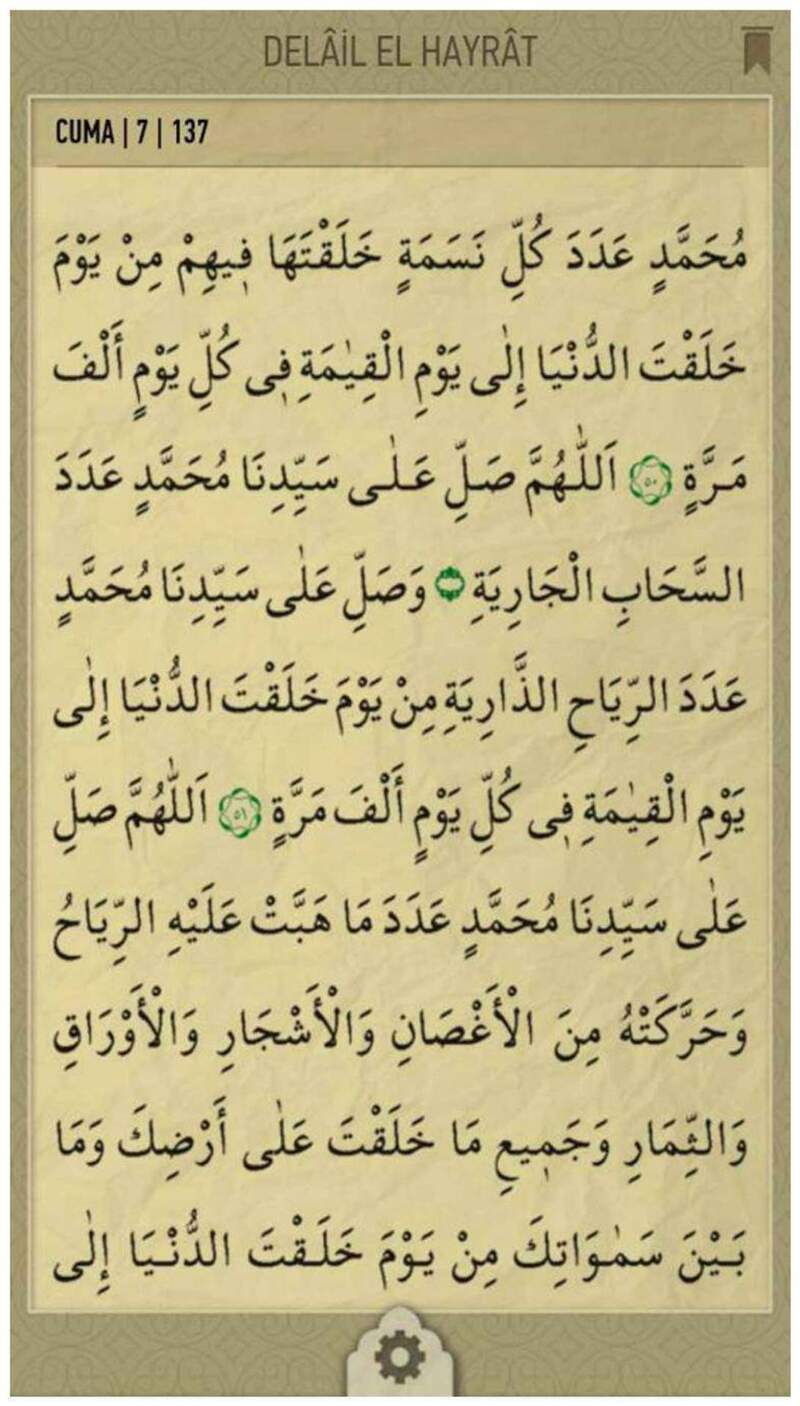 DELÂİL EL HAYRÂT
CUMA | 7 | 137
مُحَمَّدٍ عَدَدَ كُلِّ نَسَمَةٍ خَلَقْتَهَا فِيهِمْ مِنْ يَوْمَ
خَلَقْتَ الدُّنْيَا إِلٰى يَوْمِ الْقِيٰمَةِ فِى كُلِّ يَوْمٍ أَلْفَ
مَرَّةٍ ٥٠ اَللّٰهُمَّ صَلِّ عَلٰى سَيِّدِنَا مُحَمَّدٍ عَدَدَ
السَّحَابِ الْجَارِيَةِ وَصَلِّ عَلٰى سَيِّدِنَا مُحَمَّدٍ
عَدَدَ الرِّيَاحِ الذَّارِيَةِ مِنْ يَوْمَ خَلَقْتَ الدُّنْيَا إِلٰى
يَوْمِ الْقِيٰمَةِ فِى كُلِّ يَوْمٍ أَلْفَ مَرَّةٍ ٥١ اَللّٰهُمَّ صَلِّ
عَلٰى سَيِّدِنَا مُحَمَّدٍ عَدَدَ مَا هَبَّتْ عَلَيْهِ الرِّيَاحُ
وَحَرَّكَتْهُ مِنَ الْأَغْصَانِ وَالْأَشْجَارِ وَالْأَوْرَاقِ
وَالثِّمَارِ وَجَمِيعِ مَا خَلَقْتَ عَلٰى أَرْضِكَ وَمَا
بَيْنَ سَمٰوَاتِكَ مِنْ يَوْمَ خَلَقْتَ الدُّنْيَا إِلٰى